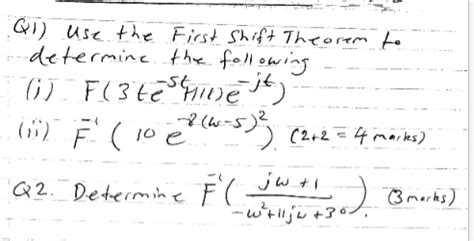 Q1) Use the First Shift Theorem to
determine the following
(i) F(3te^-5t H(t)e^-jt)
(ii) F^-1 ( 10 e^-2(w-5)^2 ). (2+2 = 4 marks)
Q2. Determine F^-1 ( jw+1 / -w^2+11jw+30 ). (3 marks)